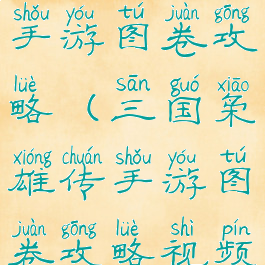 shǒu yóu tú juàn gōng
手游图卷攻
lüè sān guó xiāo
略（三国枭
xióng chuán shǒu yóu tú
雄传手游图
juàn gōng lüè shì pín
卷攻略视频